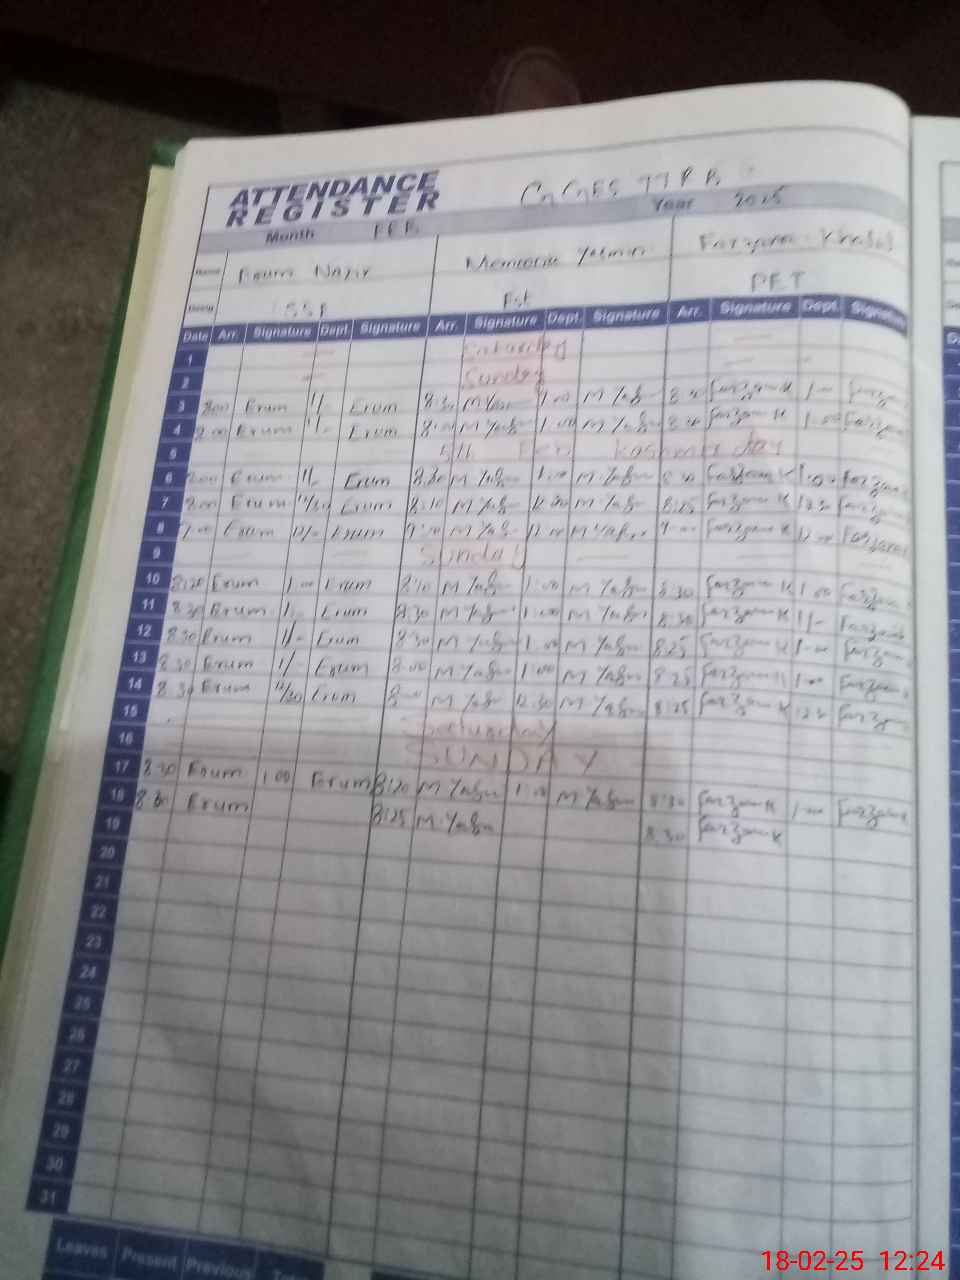 ATTENDANCE
REGISTER
GGES 77 P B
Month FEB Year 2025
Name Erum Nazir Yasmin Farzana Khalid
Desig SST Est PET
Date Arr. Signature Dept. Signature Arr. Signature Dept. Signature Arr. Signature Dept. Signature
1 Saturday
2 Sunday
3 8:00 Erum 1/- Erum 8:30 M Yasmin 1:00 M Yasmin Farzana K 1-00
4 8:00 Erum 1/- Erum 8:00 M Yasmin 1:00 M Yasmin Farzana K 1-00 Farzana
5 5th Feb Kashmir day
6 8:00 Erum 1/- Erum 8:30 M Yasmin 1:00 M Yasmin 8 30 Farzana K 1-00 Farzana
7 8:00 Erum 12/30 Erum 8:10 M Yasmin 12:30 M Yasmin 8:25 Farzana K Farzana
8 9:00 Erum 12/- Erum 9:00 M Yasmin 12:00 M Yasmin 9-00 Farzana K 12-00 Farzana
9 Sunday
10 8:20 Erum 1:00 Erum 8:10 M Yasmin 1:00 M Yasmin 8:30 Farzana K 1 00 Farzana
11 8:30 Erum 1/- Erum 8:30 M Yasmin 1:00 M Yasmin 8:30 Farzana K 1/- Farzana
12 8:30 Erum 1/- Erum 8:30 M Yasmin 1:00 M Yasmin 8:25 Farzana K 1-00 Farzana
13 8:30 Erum 1/- Erum 8:00 M Yasmin 1:00 M Yasmin 8:25 Farzana K 1-00 Farzana
14 8:30 Erum 12/30 Erum M Yasmin 12:30 M Yasmin 8:25 Farzana K Farzana
15 Saturday
16 SUNDAY
17 8:30 Erum 1:00 Erum 8:20 M Yasmin 1:00 M Yasmin 8:30 Farzana K 1-00 Farzana
18 8:30 Erum 8:25 M Yasmin 8:30 Farzana K
19
20
21
22
23
24
25
26
27
28
29
30
31
Leaves Present Previous
18-02-25 12:24